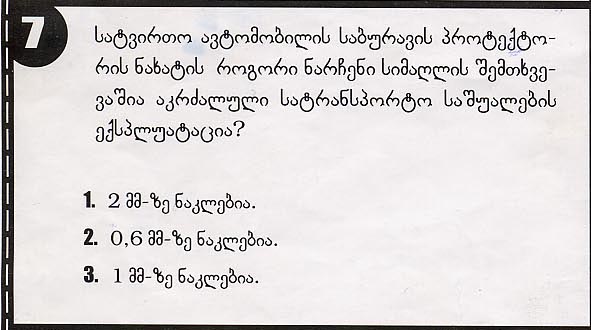 7
სატვირთო ავტომობილის საბურავის პროტექტო-
რის ნახატის როგორი ნარჩენი სიმაღლის შემთხვე-
ვაშია აკრძალული სატრანსპორტო საშუალების
ექსპლუატაცია?
1. 2 მმ-ზე ნაკლებია.
2. 0,6 მმ-ზე ნაკლებია.
3. 1 მმ-ზე ნაკლებია.